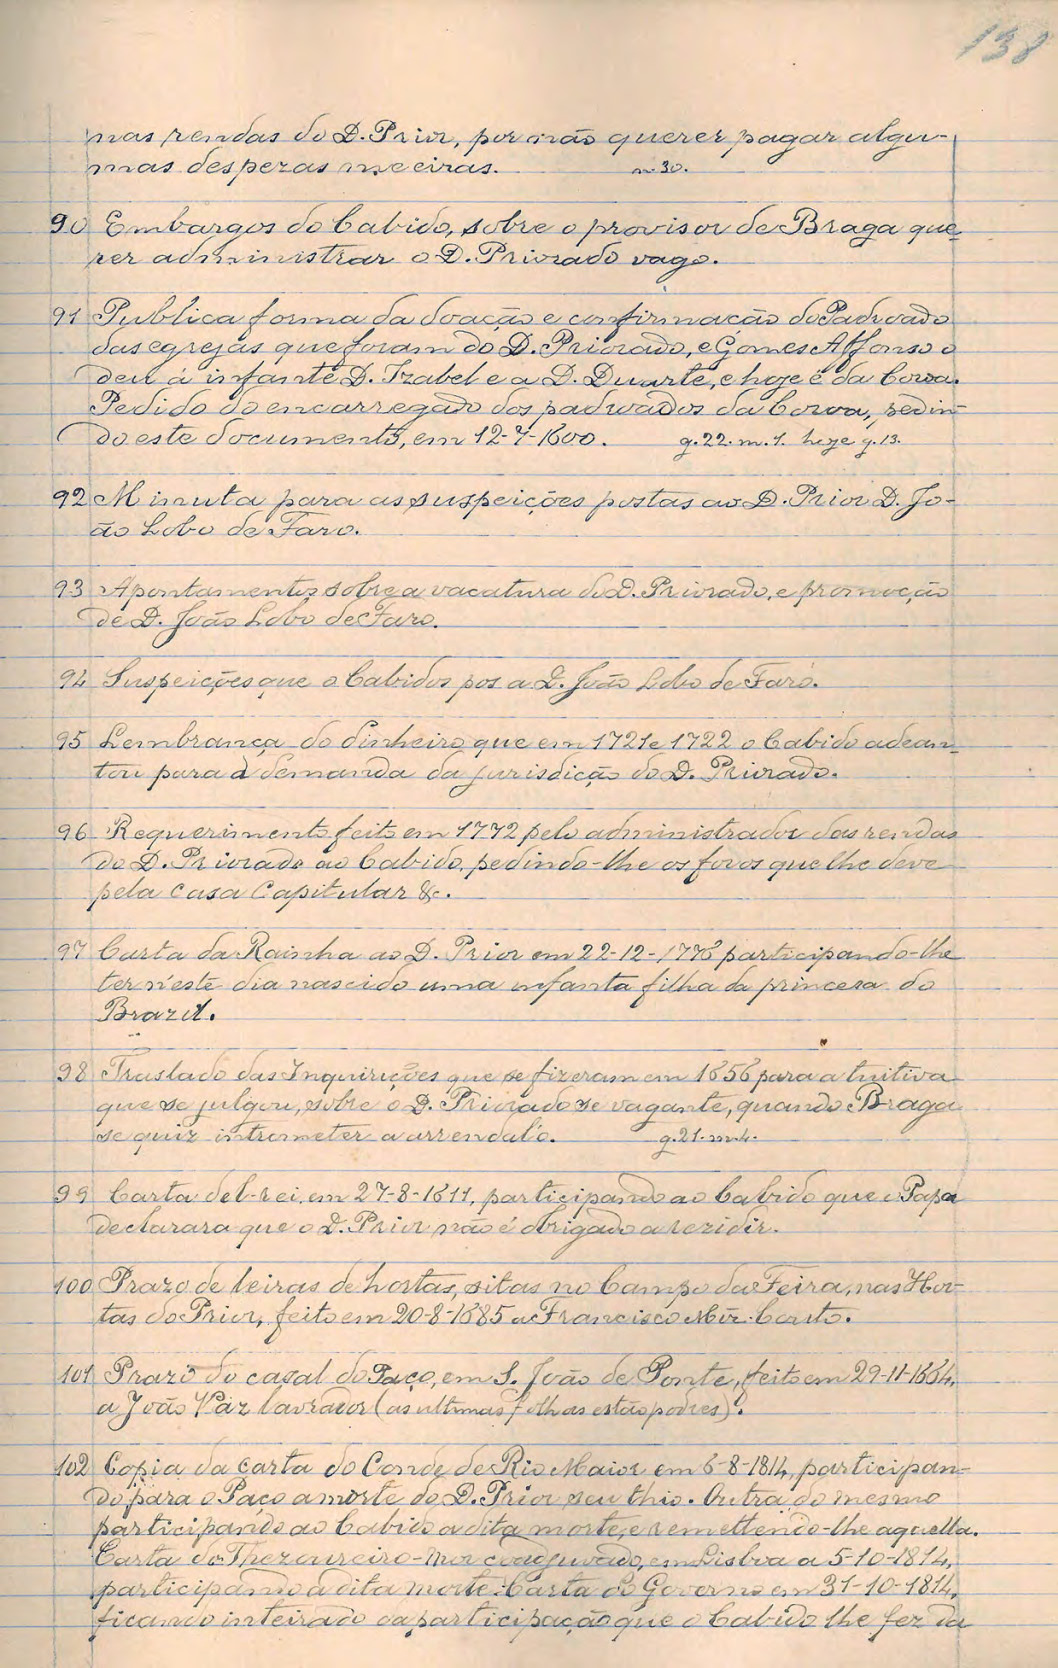 138
nas rendas do D. Prior, por não querer pagar algu-
mas despezas meeiras. m. 30.
90 Embargos do Cabido, sobre o provisor de Braga que-
rer administrar o D. Priorado vago.
91 Publica forma da doação e confirmação do Padroado
das egrejas que foram do D. Priorado, e Gomes Affonso o
deu á infante D. Izabel e a D. Duarte, e hoje é da Coroa.
Pedido do encarregado dos padroados da Coroa, pedin-
do este documento, em 12-7-1600. g. 22. m. 1. hoje g. 13.
92 Minuta para as suspeições postas ao D. Prior D. Jo-
ão Lobo de Faro.
93 Apontamentos sobre a vacatura do D. Priorado, e promoção
de D. João Lobo de Faro.
94 Suspeições que o Cabidos pos a D. João Lobo de Faro.
95 Lembrança do dinheiro que em 1721 e 1722 o Cabido adean-
tou para a demanda da jurisdição do D. Priorado.
96 Requerimento feito em 1772 pelo administrador das rendas
do D. Priorado ao Cabido, pedindo-lhe os foros que lhe deve
pela casa Capitular &.
97 Carta da Rainha ao D. Prior em 22-12-1776 participando-lhe
ter n'este dia nascido uma infanta filha da princesa do
Brazil.
98 Traslado das Inquirições que se fizeram em 1656 para a tuitiva
que se julgou, sobre o D. Priorado se vagante, quando Braga
se quiz intrometer a arrendal'o. g. 21. m. 4.
99 Carta del-rei, em 27-8-1611, participando ao Cabido que o Papa
declarara que o D. Prior não é obrigado a rezidir.
100 Prazo de leiras de hortas, sitas no Campo da Feira, nas Hor-
tas do Prior, feito em 20-8-1685 a Francisco Mir. Couto.
101 Prazo do casal do Paço, em S. João de Ponte, feito em 29-11-1684,
a João Vaz lavrador (as ultimas folhas estão podres).
102 Copia da carta do Conde de Rio Maior em 6-8-1814, participan-
do para o Paço a morte do D. Prior seu thio. Outra do mesmo
participando ao Cabido a dita morte, e remettendo-lhe aquella.
Carta do Thezoureiro-Mor coadjuvado, em Lisboa a 5-10-1814,
participando a dita morte. Carta do Governo em 31-10-1814,
ficando inteirado da participação que o Cabido lhe fez da